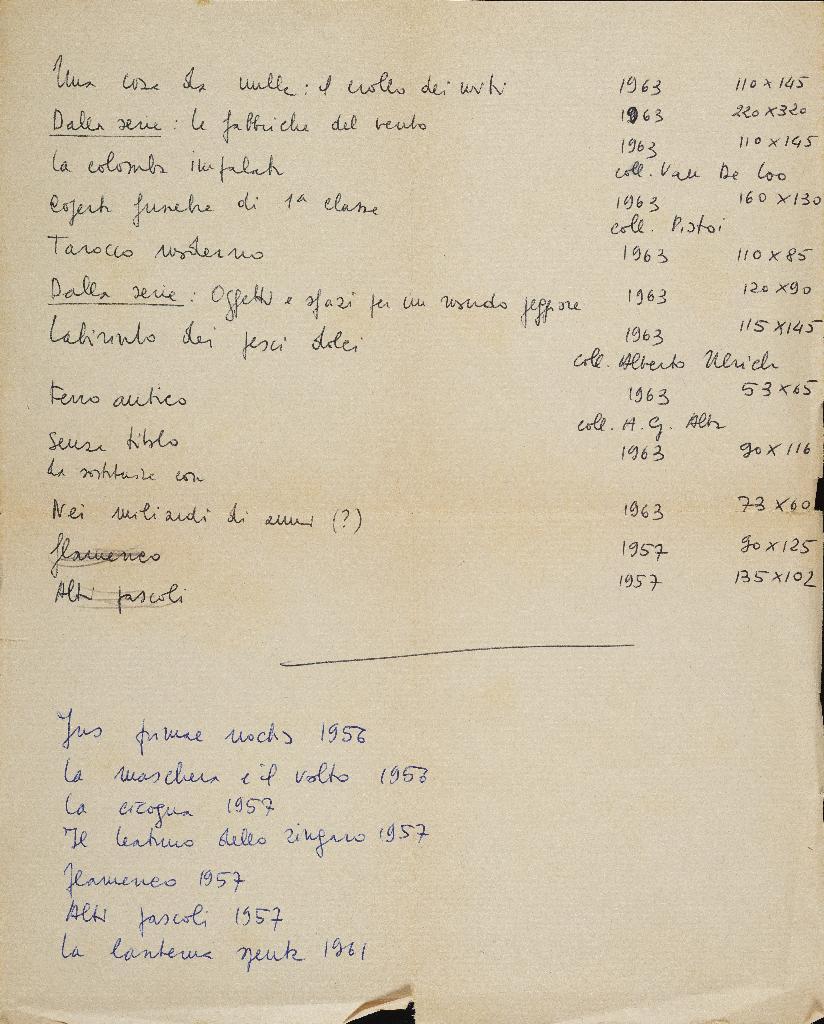 Una cosa da nulla: il crollo dei miti 1963 110 x 145
Dalla serie: le fabbriche del vento 1963 220 x 320
La colomba impalata 1963 110 x 145
coll. Van De Loo
Cofecta funebre di 1ª classe 1963 160 x 130
coll. Pistoi
Tarocco moderno 1963 110 x 85
Dalla serie: Oggetti e spazi per un mondo peggiore 1963 120 x 90
Labirinto dei pesci dolci 1963 115 x 145
coll. Alberto Ulrich
Ferro antico 1963 53 x 65
coll. A. G. Alta
Senza titolo 1963 90 x 116
da sostituire con
Nei miliardi di anni (?) 1963 73 x 60
flamenco 1957 90 x 125
Altri pascoli 1957 135 x 102
Jus primae noctis 1956
La maschera e il volto 1956
La cicogna 1957
Il teatrino dello zingaro 1957
flamenco 1957
Altri pascoli 1957
La lanterna spenta 1961